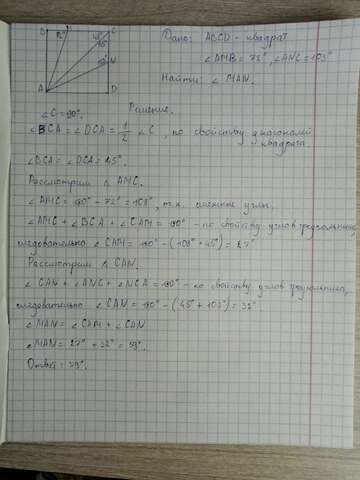 B M C
72° 45°
45°
103° N
A D
Дано: ABCD - квадрат
∠AMB = 72°, ∠ANC = 103°
Найти: ∠ MAN.
Решение.
∠C = 90°.
∠BCA = ∠DCA = 1/2 ∠C, по свойству диагоналей
квадрата
∠BCA = ∠DCA = 45°.
Рассмотрим △ AMC.
∠AMC = 180° - 72° = 108°, т.к. смежные углы.
∠AMC + ∠BCA + ∠CAM = 180° - по свойству углов треугольника,
следовательно ∠ CAM = 180° - (108° + 45°) = 27°
Рассмотрим △ CAN.
∠ CAN + ∠ANC + ∠NCA = 180° - по свойству углов треугольника,
следовательно ∠ CAN = 180° - (45° + 103°) = 32°
∠MAN = ∠CAM + ∠CAN
∠MAN = 27° + 32° = 59°.
Ответ: 59°.